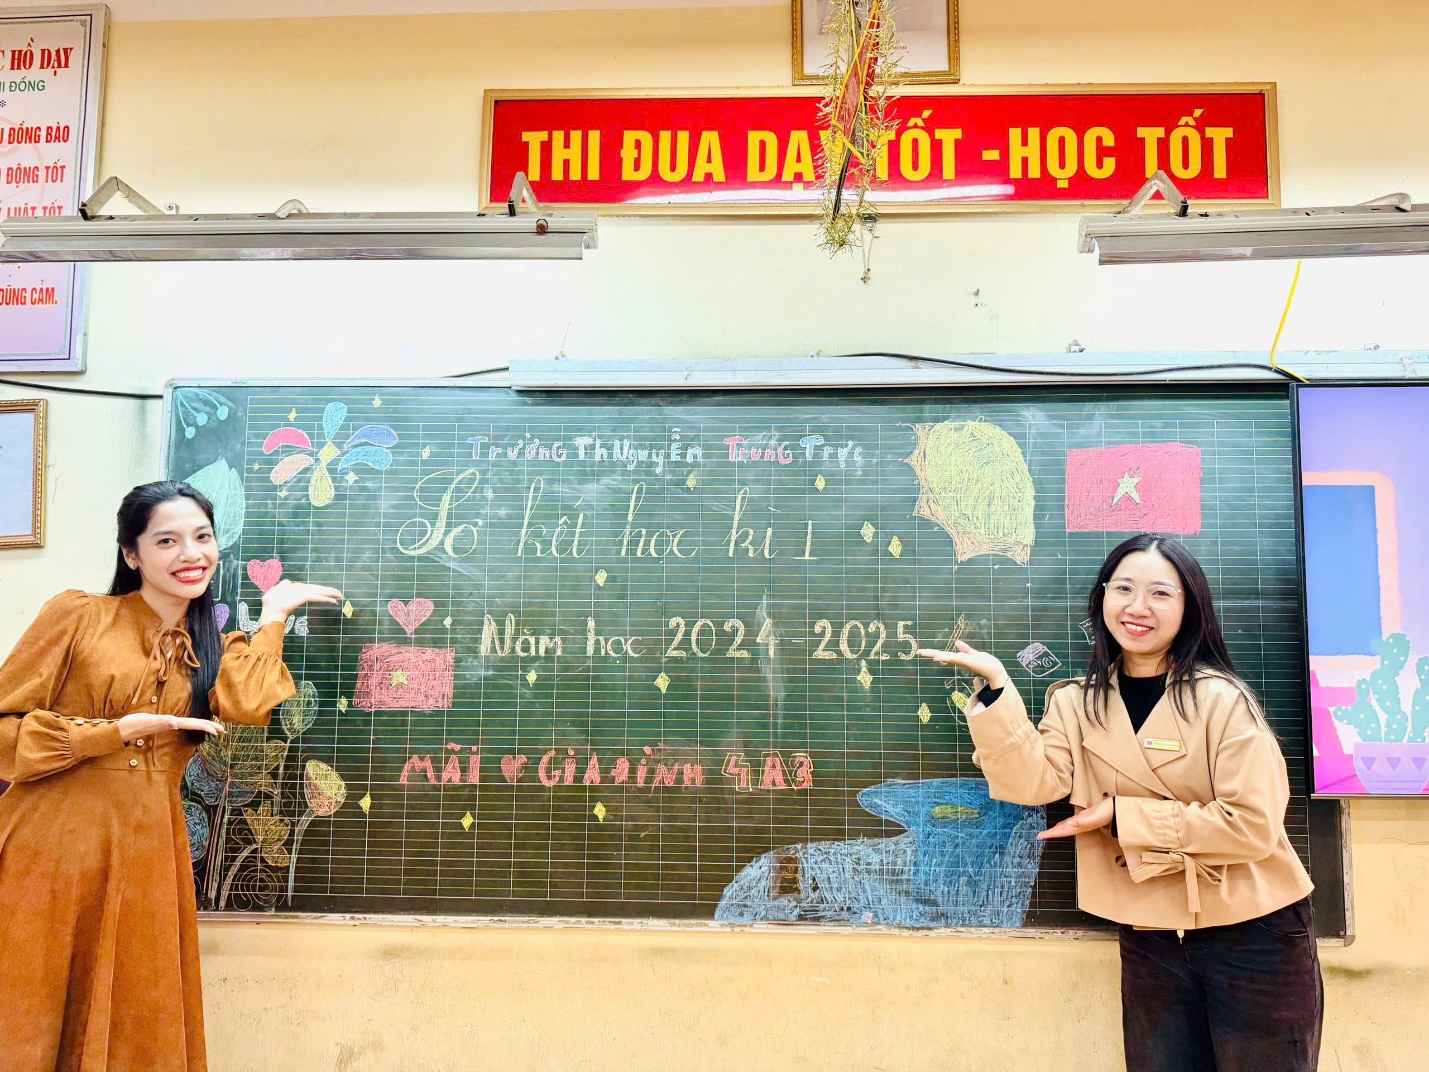 HỒ DẠY
ĐỒNG
ĐỒNG BÀO
ĐỘNG TỐT
LUẬT TỐT
DŨNG CẢM.
THI ĐUA DẠY TỐT - HỌC TỐT
Trường Th Nguyễn Trung Trực
Sơ kết học kì 1
Love
Năm học 2024 - 2025
MÃI ♥ GIA ĐÌNH 4A3